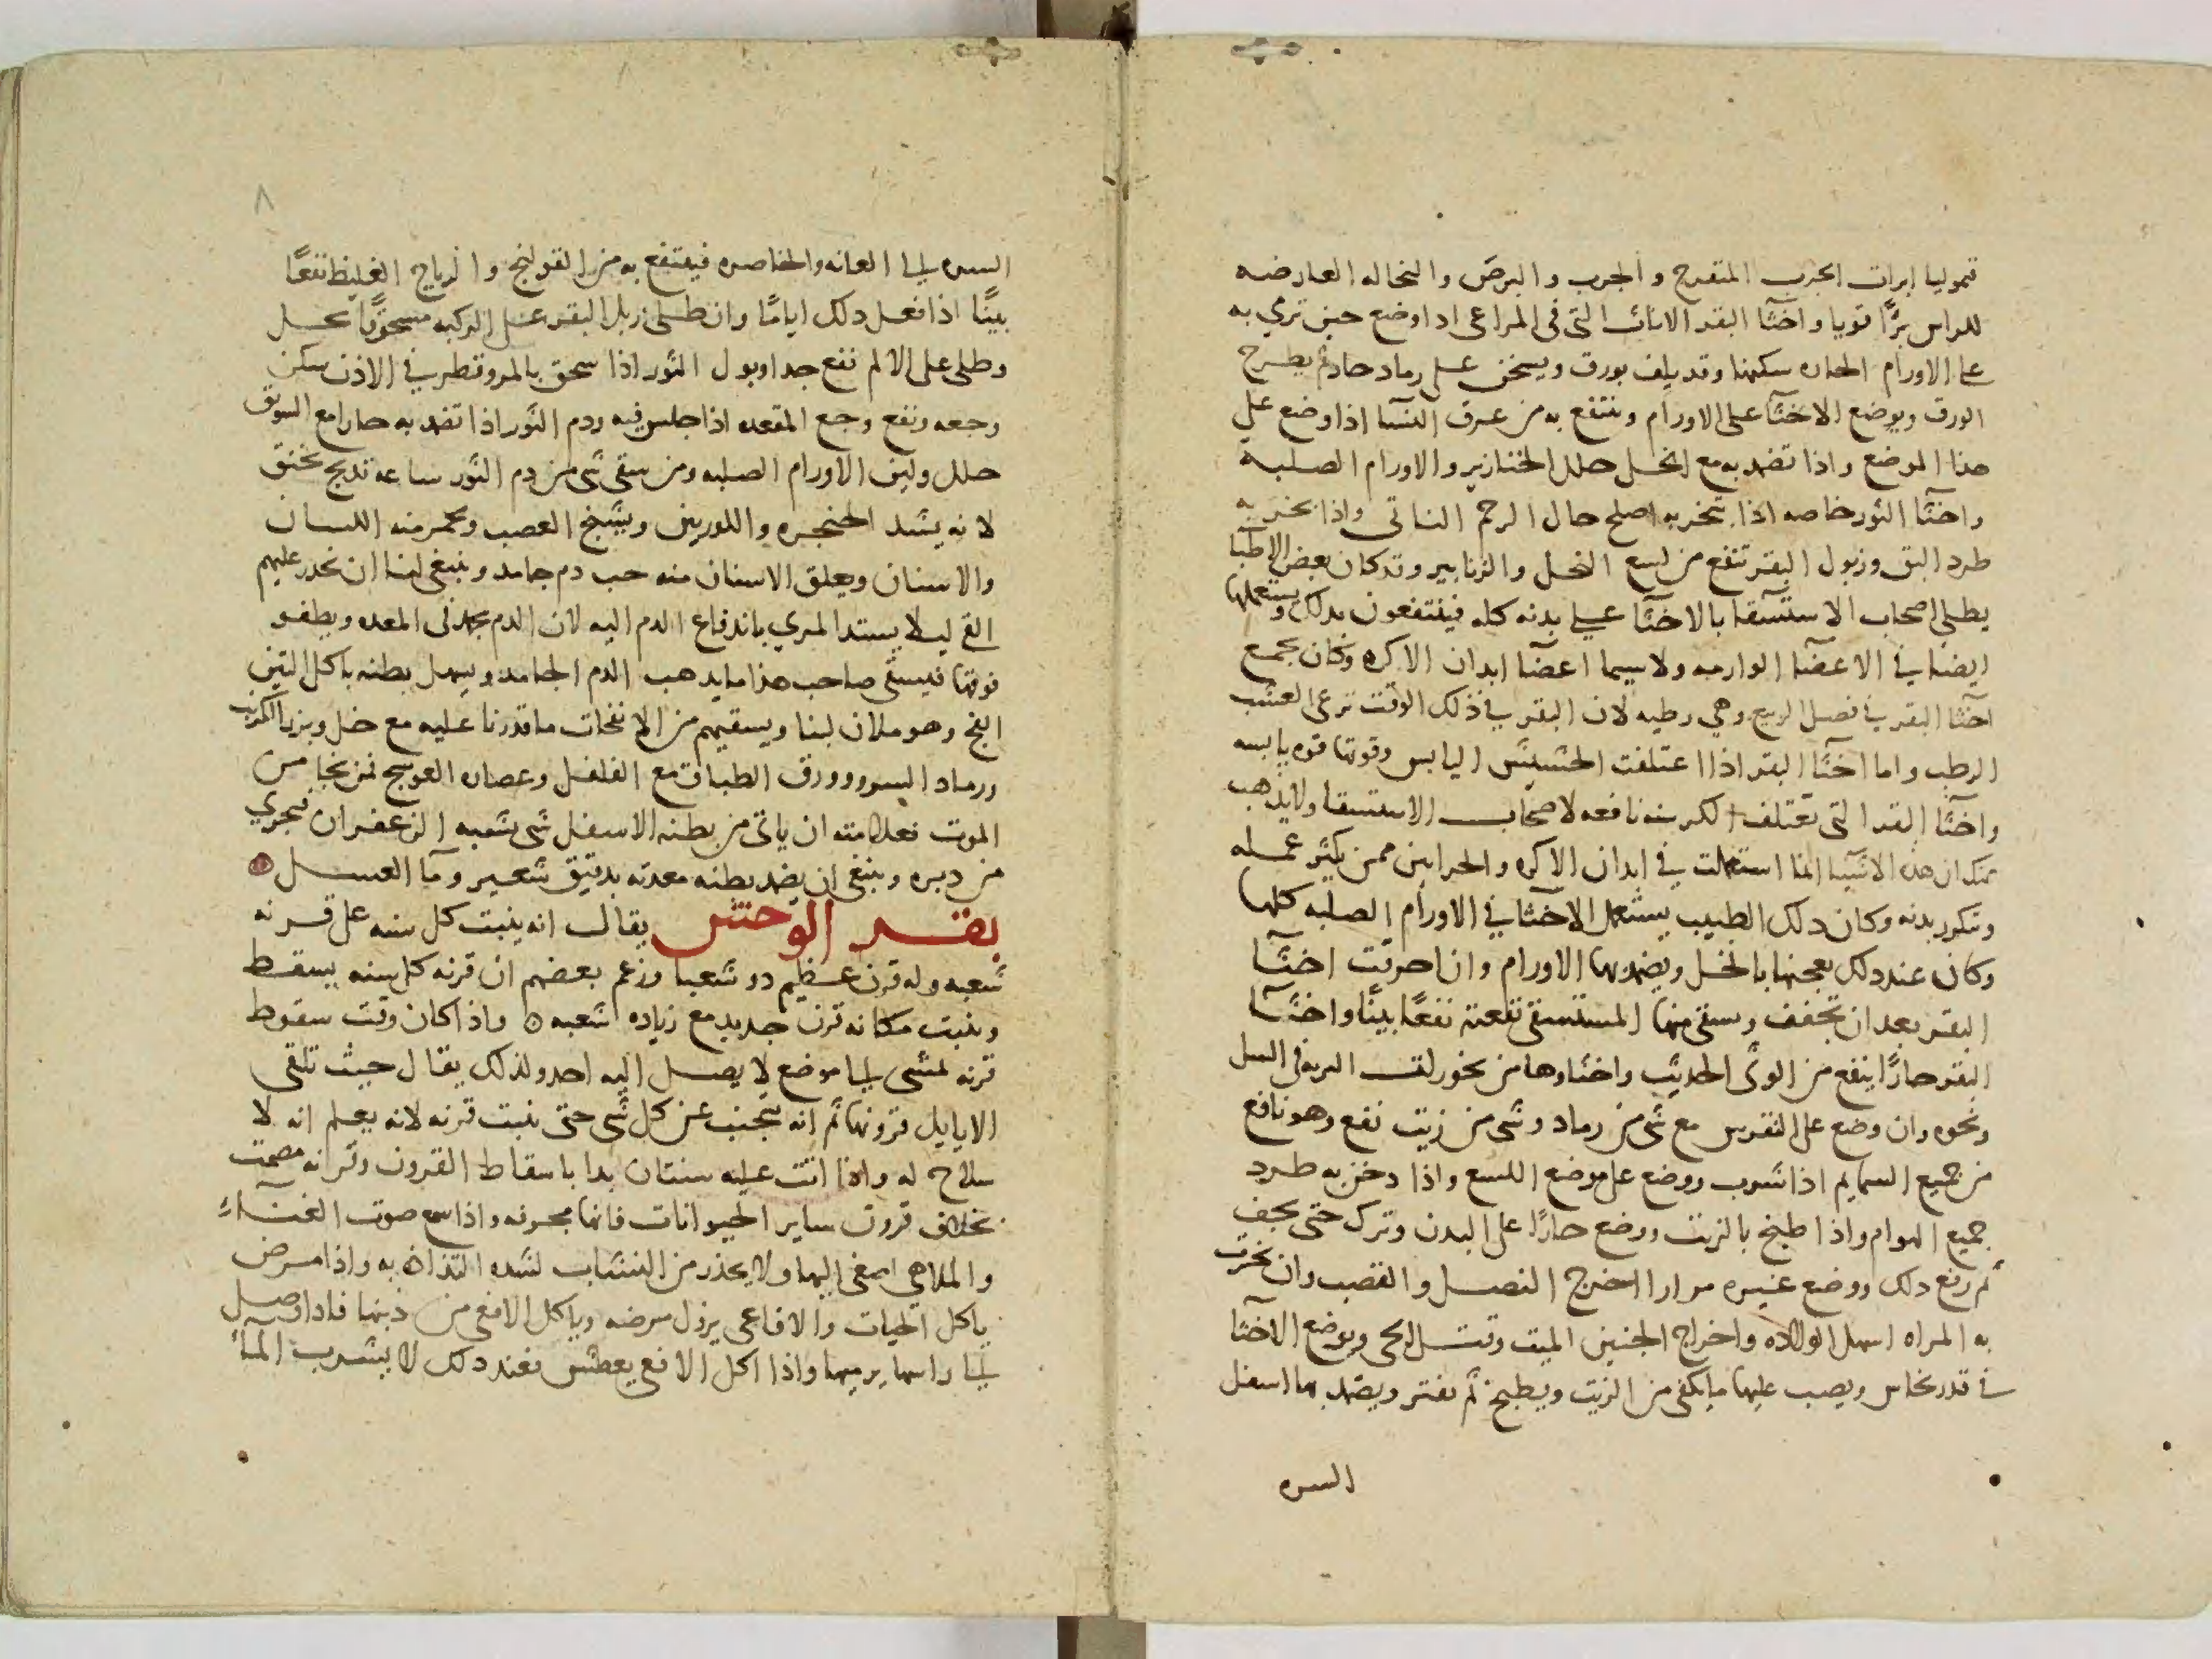 قموليا ابرات الجرب المتقرح والجرب والبرص والنخاله العارضه
للراس برًّا قويا واخثا البقر الاناث التى فى المراعى اذا وضع حين ترمي به
على الاورام الحاره سكنها وقد يلف بورق ويسخن على رماد حار ثم يطرح
الورق ويوضع الاخثا على الاورام وينتفع به من عرق النسا اذا وضع على
هذا الموضع واذا تضمد به مع الخل حلل الخنازير والاورام الصلبه
واخثا الثور خاصه اذا تبخر به اصلح حال الرحم الناتى واذا بخر به
طرد البق وزبول البقر تنفع من لسع النحل والزنابير وقد كان بعض الاطبا
يطلى اصحاب الاستسقا بالاخثا على بدنه كله فينتفعون بذلك ويستعملها
ايضا في الاعضا الوارمه ولا سيما اعضا ابدان الاكره وكان يجمع
اخثا البقر في فصل الربيع وهي رطبه لان البقر في ذلك الوقت ترعى العشب
الرطب واما اخثا البقر اذا اعتلفت الحشيش اليابس وقوتها قوه يابسه
واخثا البقر التى تعتلف الكرسنه نافعه لاصحاب الاستسقا ولا يذهب
عنك ان هذه الاشيا انما استعملت في ابدان الاكره والحراثين ممن يكثر عمله
وتكدر بدنه وكان ذلك الطبيب يستعمل الاخثا في الاورام الصلبه كلها
وكان عند ذلك يعجنها بالخل ويضمد بها الاورام وان احرقت اخثا
البقر بعد ان تجفف وسقى منها المستسقى نفعته نفعًا بينًا واخثا
البقر حارًا ينفع من الوثى الحديث واخثاوها من بخور لقب الريه فى السل
ونحوه وان وضع على النقرس مع شى من رماد وشى من زيت نفع وهو نافع
من جميع السمايم اذا شرب ووضع على موضع اللسع واذا دخن به طرد
جميع الهوام واذا طبخ بالزيت ووضع حارًا على البدن وترك حتى يجف
ثم رفع ذلك ووضع غيره مرارا اخرج النصل والقصب وان تبخرت
به المراه اسهل الولاده واخراج الجنين الميت وقتل الحى ويوضع الاخثا
في قدر نحاس ويصب عليها ما يكفى من الزيت ويطبخ ثم يفتر ويضمد بها اسفل
السره
٨
السره الى العانه والخاصره فينتفع به من القولنج والرياح الغليظ نفعًا
بينًا اذا فعل ذلك ايامًا وان طلى زبل البقر على الركبه مسحوقًا بخل
وطلى على الالم نفع جدا وبول الثور اذا سحق بالمر وقطر في الاذن سكن
وجعه ونفع وجع المقعده اذا جلس فيه ودم الثور اذا تضمد به حارا مع السويق
حلل ولين الاورام الصلبه ومن سقى شى من دم الثور ساعه تذبح يخنق
لانه يشد الحنجره واللوزتين ويشنج العصب ويحمر منه اللسان
والاسنان ويعلق الاسنان منه حب دم جامد وينبغى لنا ان نحذر عليهم
القى ليلا يستد المري باندفاع الدم اليه لان الدم يجمد فى المعده ويطفو
فوقها فيسقى صاحب هذا ما يذهب الدم الجامد ويسهل بطنه باكل التين
الفج وهو ملان لبنا ويسقيهم من الانفحات ما قدرنا عليه مع خل وبزر الكرنب
ورماد السرو وورق الطباق مع الفلفل وعصاره العوسج فمن نجا من
الموت فعلامته ان ياتى من بطنه الاسفل شى يشبه الزعفران فيجري
من دبره وينبغى ان يضمد بطنه معدته بدقيق شعير وما العسل
بقر الوحش يقال انه ينبت كل سنه على قرنه
شعبه وله قرن عظيم ذو شعبا وزعم بعضهم ان قرنه كل سنه يسقط
وينبت مكانه قرن جديد مع زياده شعبه ۞ واذا كان وقت سقوط
قرنه لمشى الى موضع لا يصل اليه احد ولذلك يقال حيث تلقى
الايايل قرونها ثم انه يتجنب عن كل شى حتى ينبت قرنه لانه يعلم انه لا
سلاح له واذا اتت عليه سنتان بدا باسقاط القرون وقرانه مصمت
بخلاف قرون ساير الحيوانات فانها مجوفه واذا سمع صوت الغناء
والملاهي اصغى اليها ولا يحذر من النشاب لشده التذاذه به واذا مرض
ياكل الحيات والافاعى يزول مرضه وياكل الافعى من ذنبها فاذا وصل
الى راسها يرميها واذا اكل الافعى يعطش فعند ذلك لا يشرب الماء